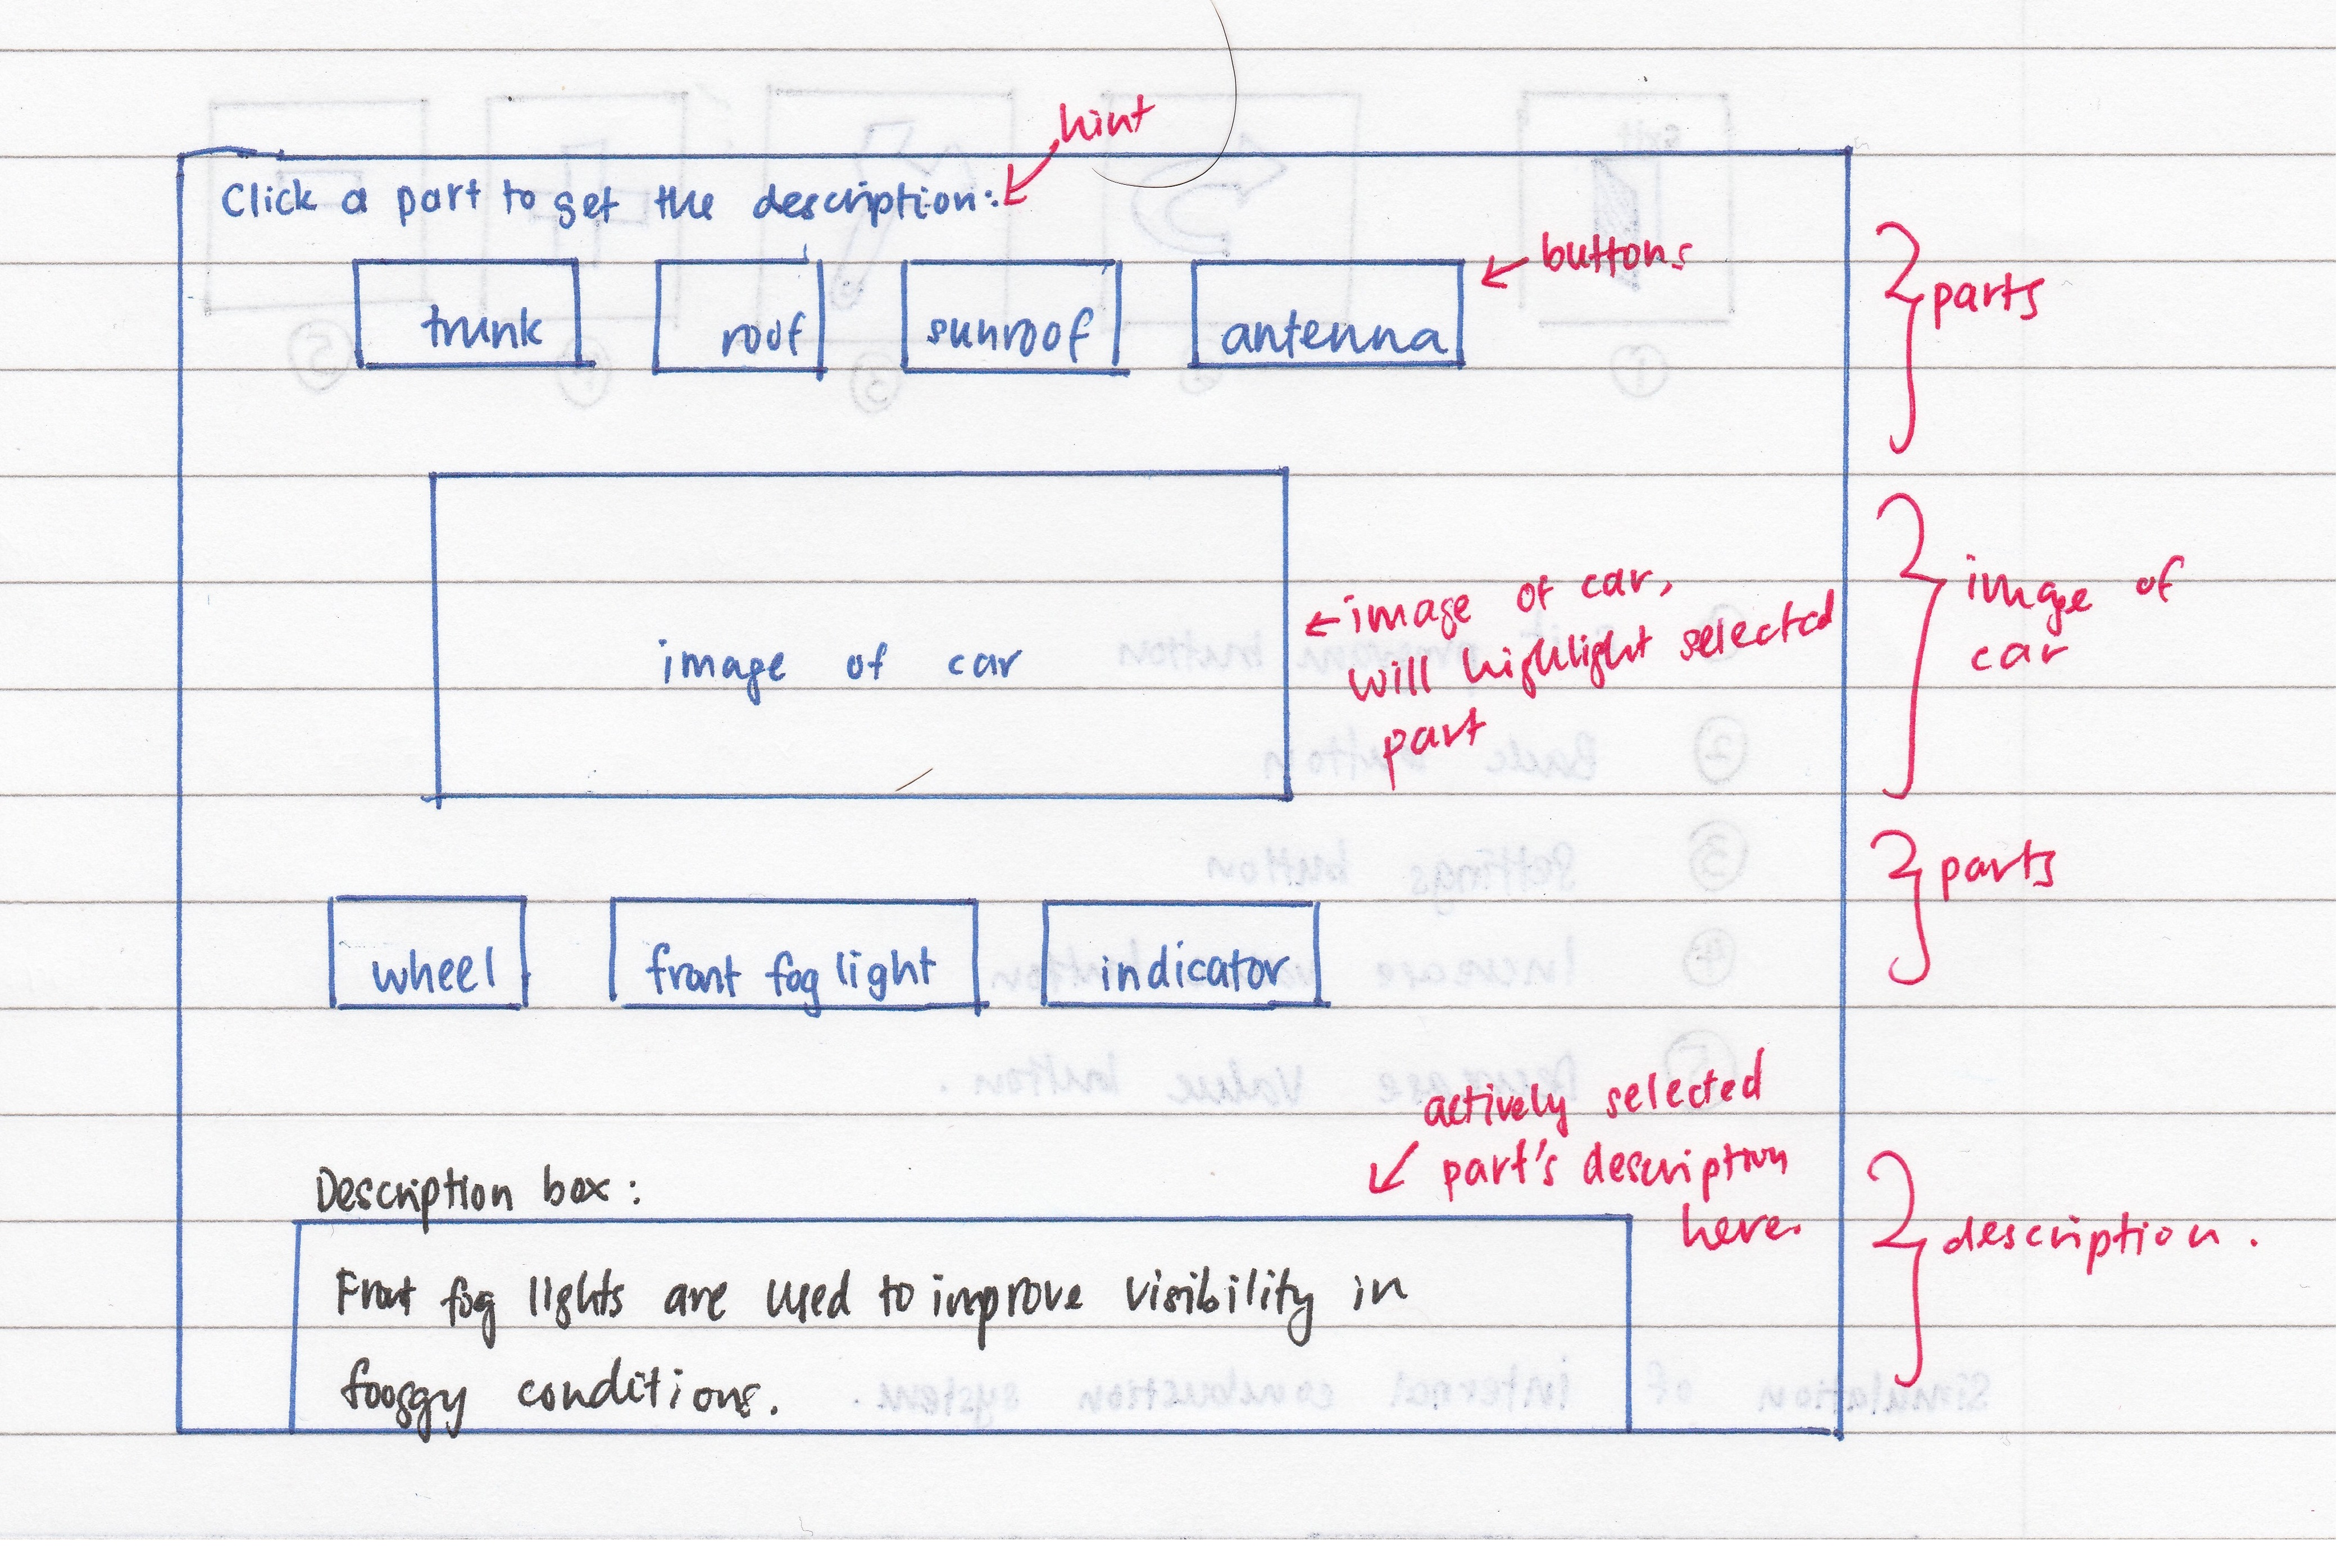 hint
Click a part to get the description:
buttons
trunk roof sunroof antenna
parts
image of car
image of car,
will highlight selected
part
image of
car
parts
wheel front fog light indicator
actively selected
part's description
here.
Description box:
description.
Front fog lights are used to improve visibility in
fooggy conditions.